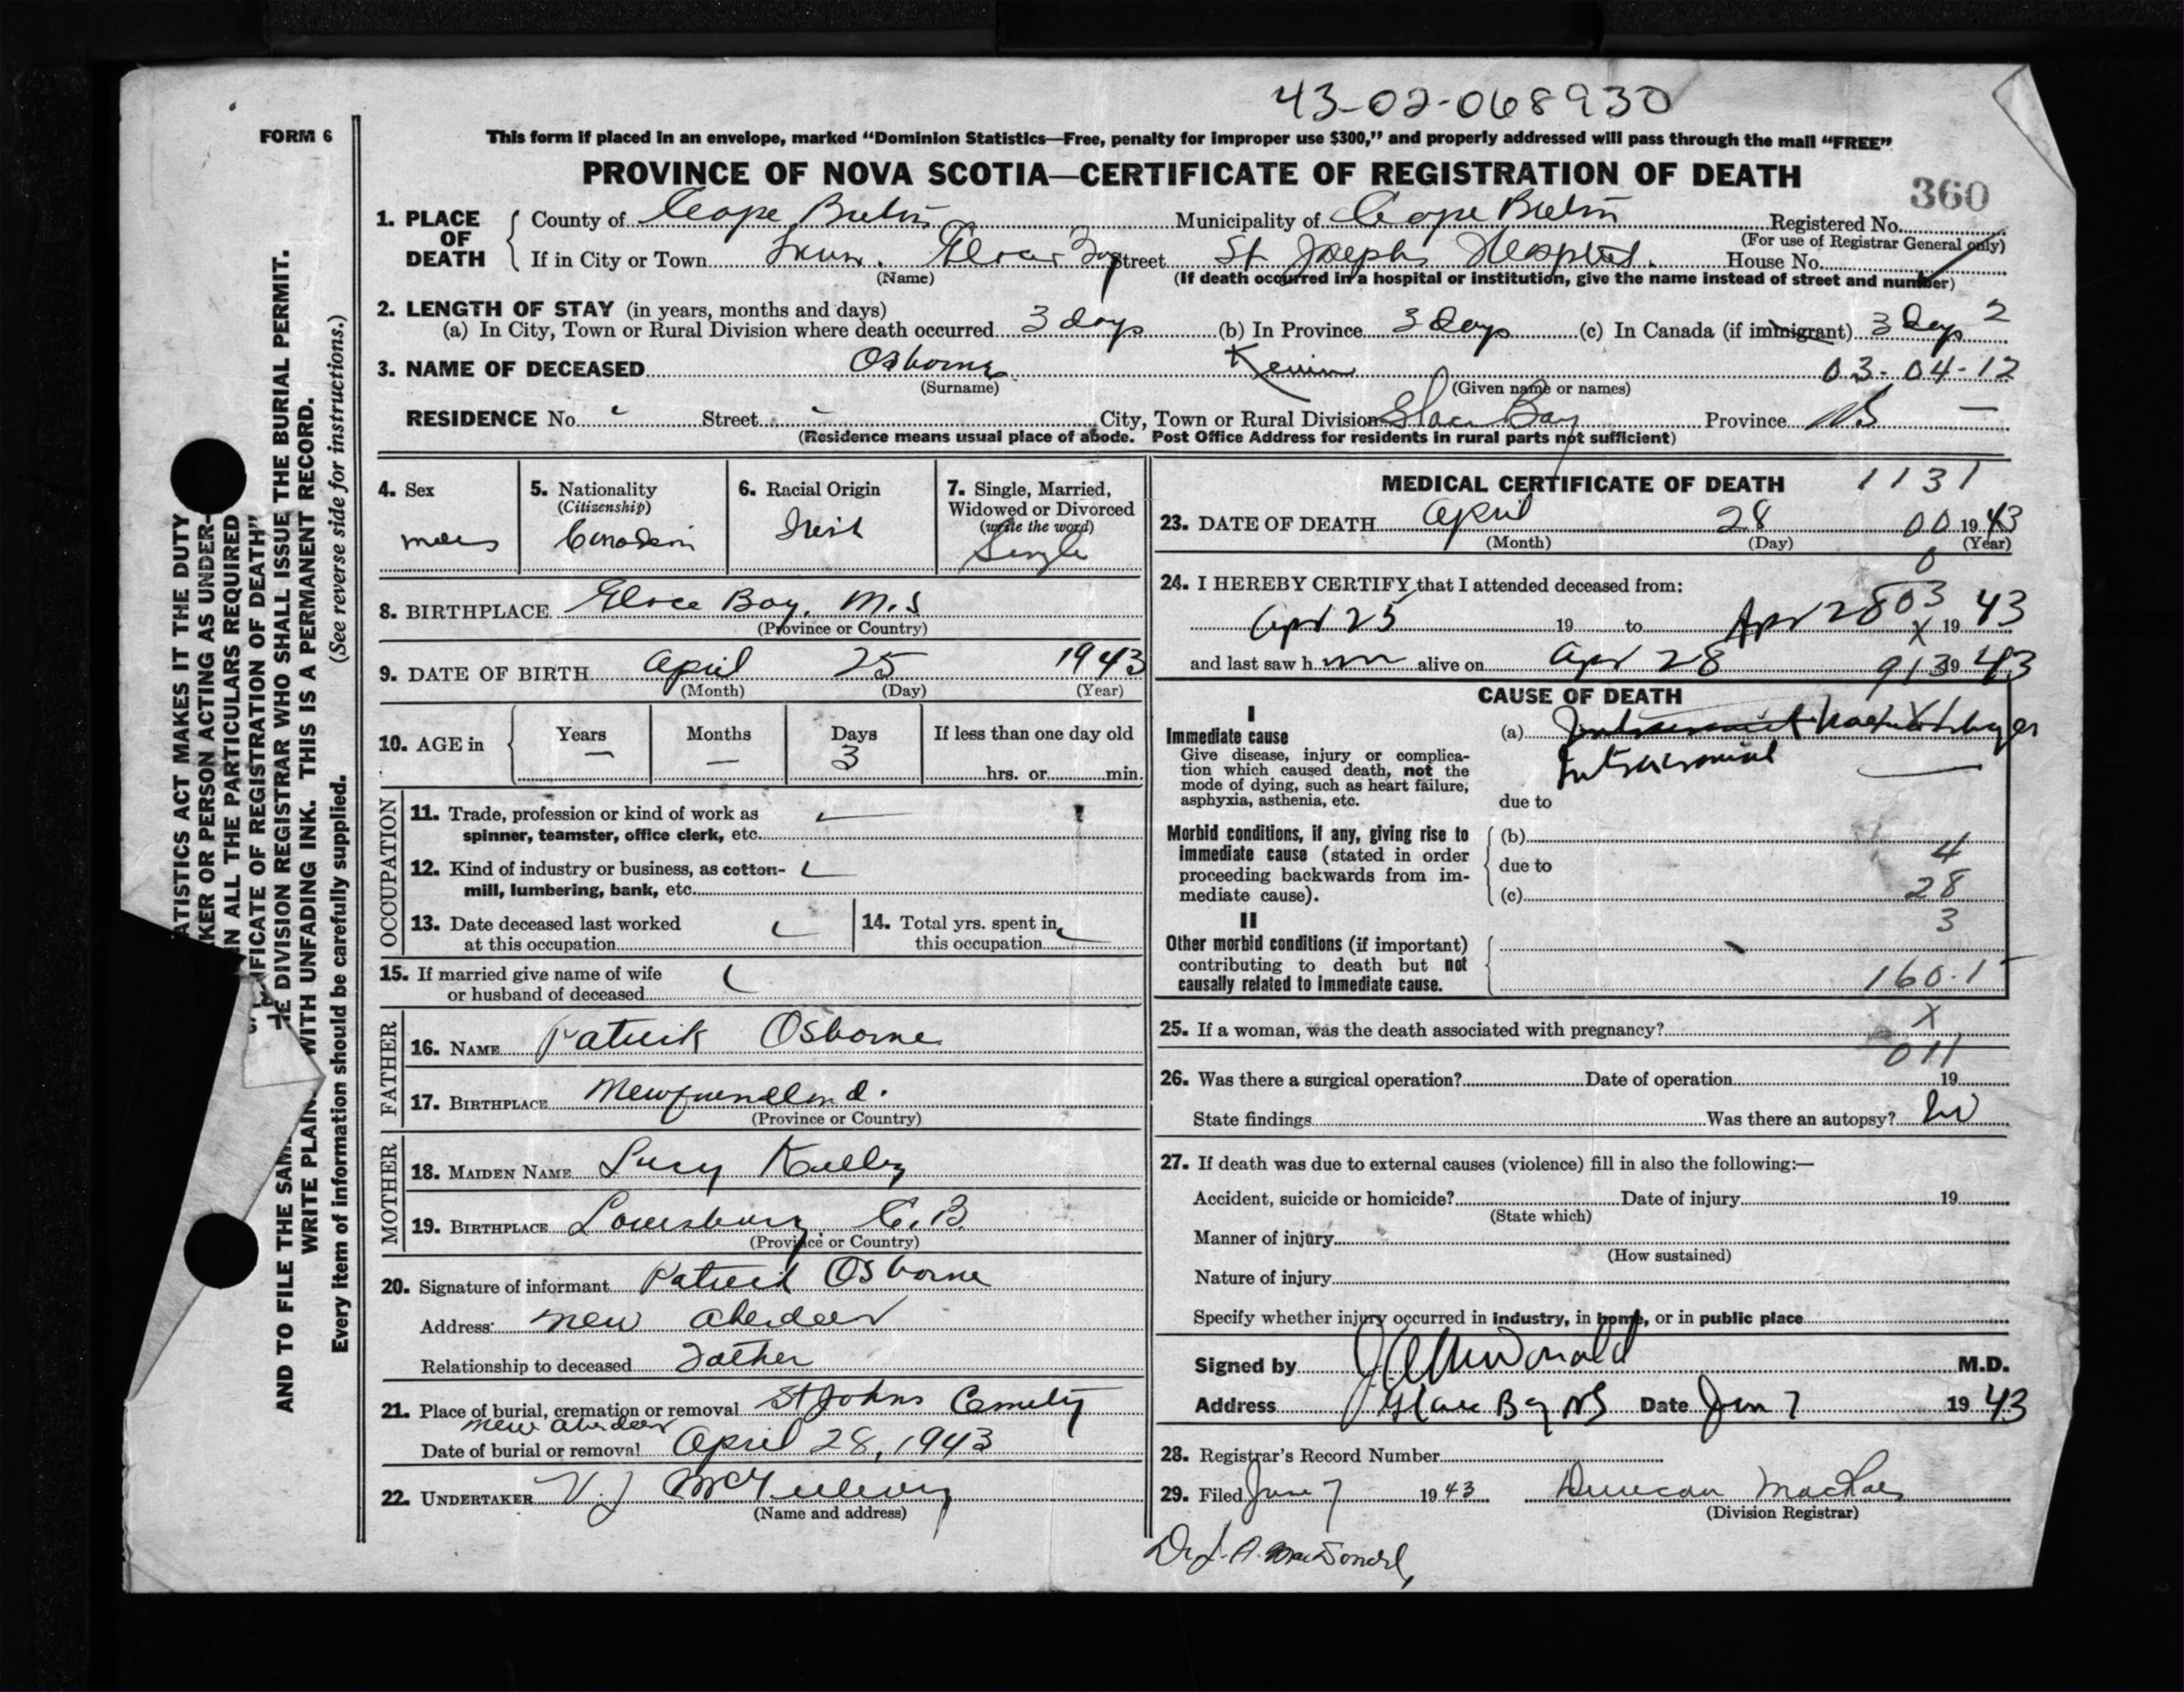 43-02-068930
FORM 6
This form if placed in an envelope, marked “Dominion Statistics—Free, penalty for improper use $300,” and properly addressed will pass through the mail “FREE”
PROVINCE OF NOVA SCOTIA—CERTIFICATE OF REGISTRATION OF DEATH
360
1. PLACE OF DEATH { County of Cape Breton Municipality of Cape Breton Registered No.
(For use of Registrar General only)
If in City or Town Town. Glace Bay Street St Josephs Hospital. House No.
(Name) (If death occurred in a hospital or institution, give the name instead of street and number)
2. LENGTH OF STAY (in years, months and days)
(a) In City, Town or Rural Division where death occurred 3 days (b) In Province 3 days (c) In Canada (if immigrant) 3 days 2
3. NAME OF DECEASED Osborne Kevin 03-04-12
(Surname) (Given name or names)
RESIDENCE No. Street City, Town or Rural Division Glace Bay Province NS —
(Residence means usual place of abode. Post Office Address for residents in rural parts not sufficient)
4. Sex
male
5. Nationality
(Citizenship)
Canadian
6. Racial Origin
Irish
7. Single, Married,
Widowed or Divorced
(write the word)
Single
8. BIRTHPLACE Glace Bay, N.S
(Province or Country)
9. DATE OF BIRTH April 25 1943
(Month) (Day) (Year)
10. AGE in { Years Months Days If less than one day old
— — 3
hrs. or min.
OCCUPATION
11. Trade, profession or kind of work as
spinner, teamster, office clerk, etc.
12. Kind of industry or business, as cotton-
mill, lumbering, bank, etc.
13. Date deceased last worked
at this occupation
14. Total yrs. spent in
this occupation
15. If married give name of wife
or husband of deceased
FATHER
16. NAME Patrick Osborne
17. BIRTHPLACE Newfoundland.
(Province or Country)
MOTHER
18. MAIDEN NAME Lucy Kelley
19. BIRTHPLACE Louisburg C.B.
(Province or Country)
20. Signature of informant Patrick Osborne
Address New Aberdeen
Relationship to deceased Father
21. Place of burial, cremation or removal St Johns Cemetery
New Aberdeen
Date of burial or removal April 28, 1943
22. UNDERTAKER V. J
(Name and address)
MEDICAL CERTIFICATE OF DEATH 1131
23. DATE OF DEATH April 28 00 1943
(Month) (Day) (Year)
0
24. I HEREBY CERTIFY that I attended deceased from:
03
Apr 25 19 to Apr 28 X 19 43
and last saw him alive on Apr 28 913 19 43
CAUSE OF DEATH
I
Immediate cause
Give disease, injury or complica-
tion which caused death, not the
mode of dying, such as heart failure,
asphyxia, asthenia, etc.
(a)
Intracranial
due to
Morbid conditions, if any, giving rise to
immediate cause (stated in order
proceeding backwards from im-
mediate cause).
(b)
4
due to
28
(c)
3
II
Other morbid conditions (if important)
contributing to death but not
causally related to immediate cause.
160.1
X
25. If a woman, was the death associated with pregnancy?
011
26. Was there a surgical operation? Date of operation 19
State findings Was there an autopsy? No
27. If death was due to external causes (violence) fill in also the following:—
Accident, suicide or homicide? Date of injury 19
(State which)
Manner of injury
(How sustained)
Nature of injury
Specify whether injury occurred in industry, in home, or in public place
Signed by J A McDonald M.D.
Address Glace Bay NS Date Jun 7 1943
28. Registrar's Record Number
29. Filed June 7 1943 Duncan MacRae
(Division Registrar)
Dr J. A. MacDonald,
ATISTICS ACT MAKES IT THE DUTY
KER OR PERSON ACTING AS UNDER-
IN ALL THE PARTICULARS REQUIRED
IFICATE OF REGISTRATION OF DEATH”
AND TO FILE THE SAM E DIVISION REGISTRAR WHO SHALL ISSUE THE BURIAL PERMIT.
WRITE PLAIN WITH UNFADING INK. THIS IS A PERMANENT RECORD.
Every item of information should be carefully supplied. (See reverse side for instructions.)